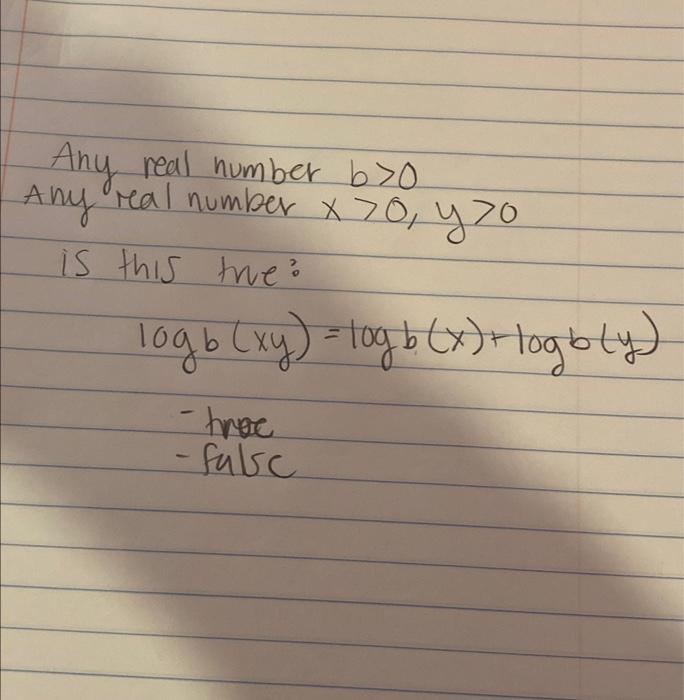 Any real number b>0
Any real number x>0, y>0
is this true?
logb(xy)=logb(x)+logb(y)
- true
- false